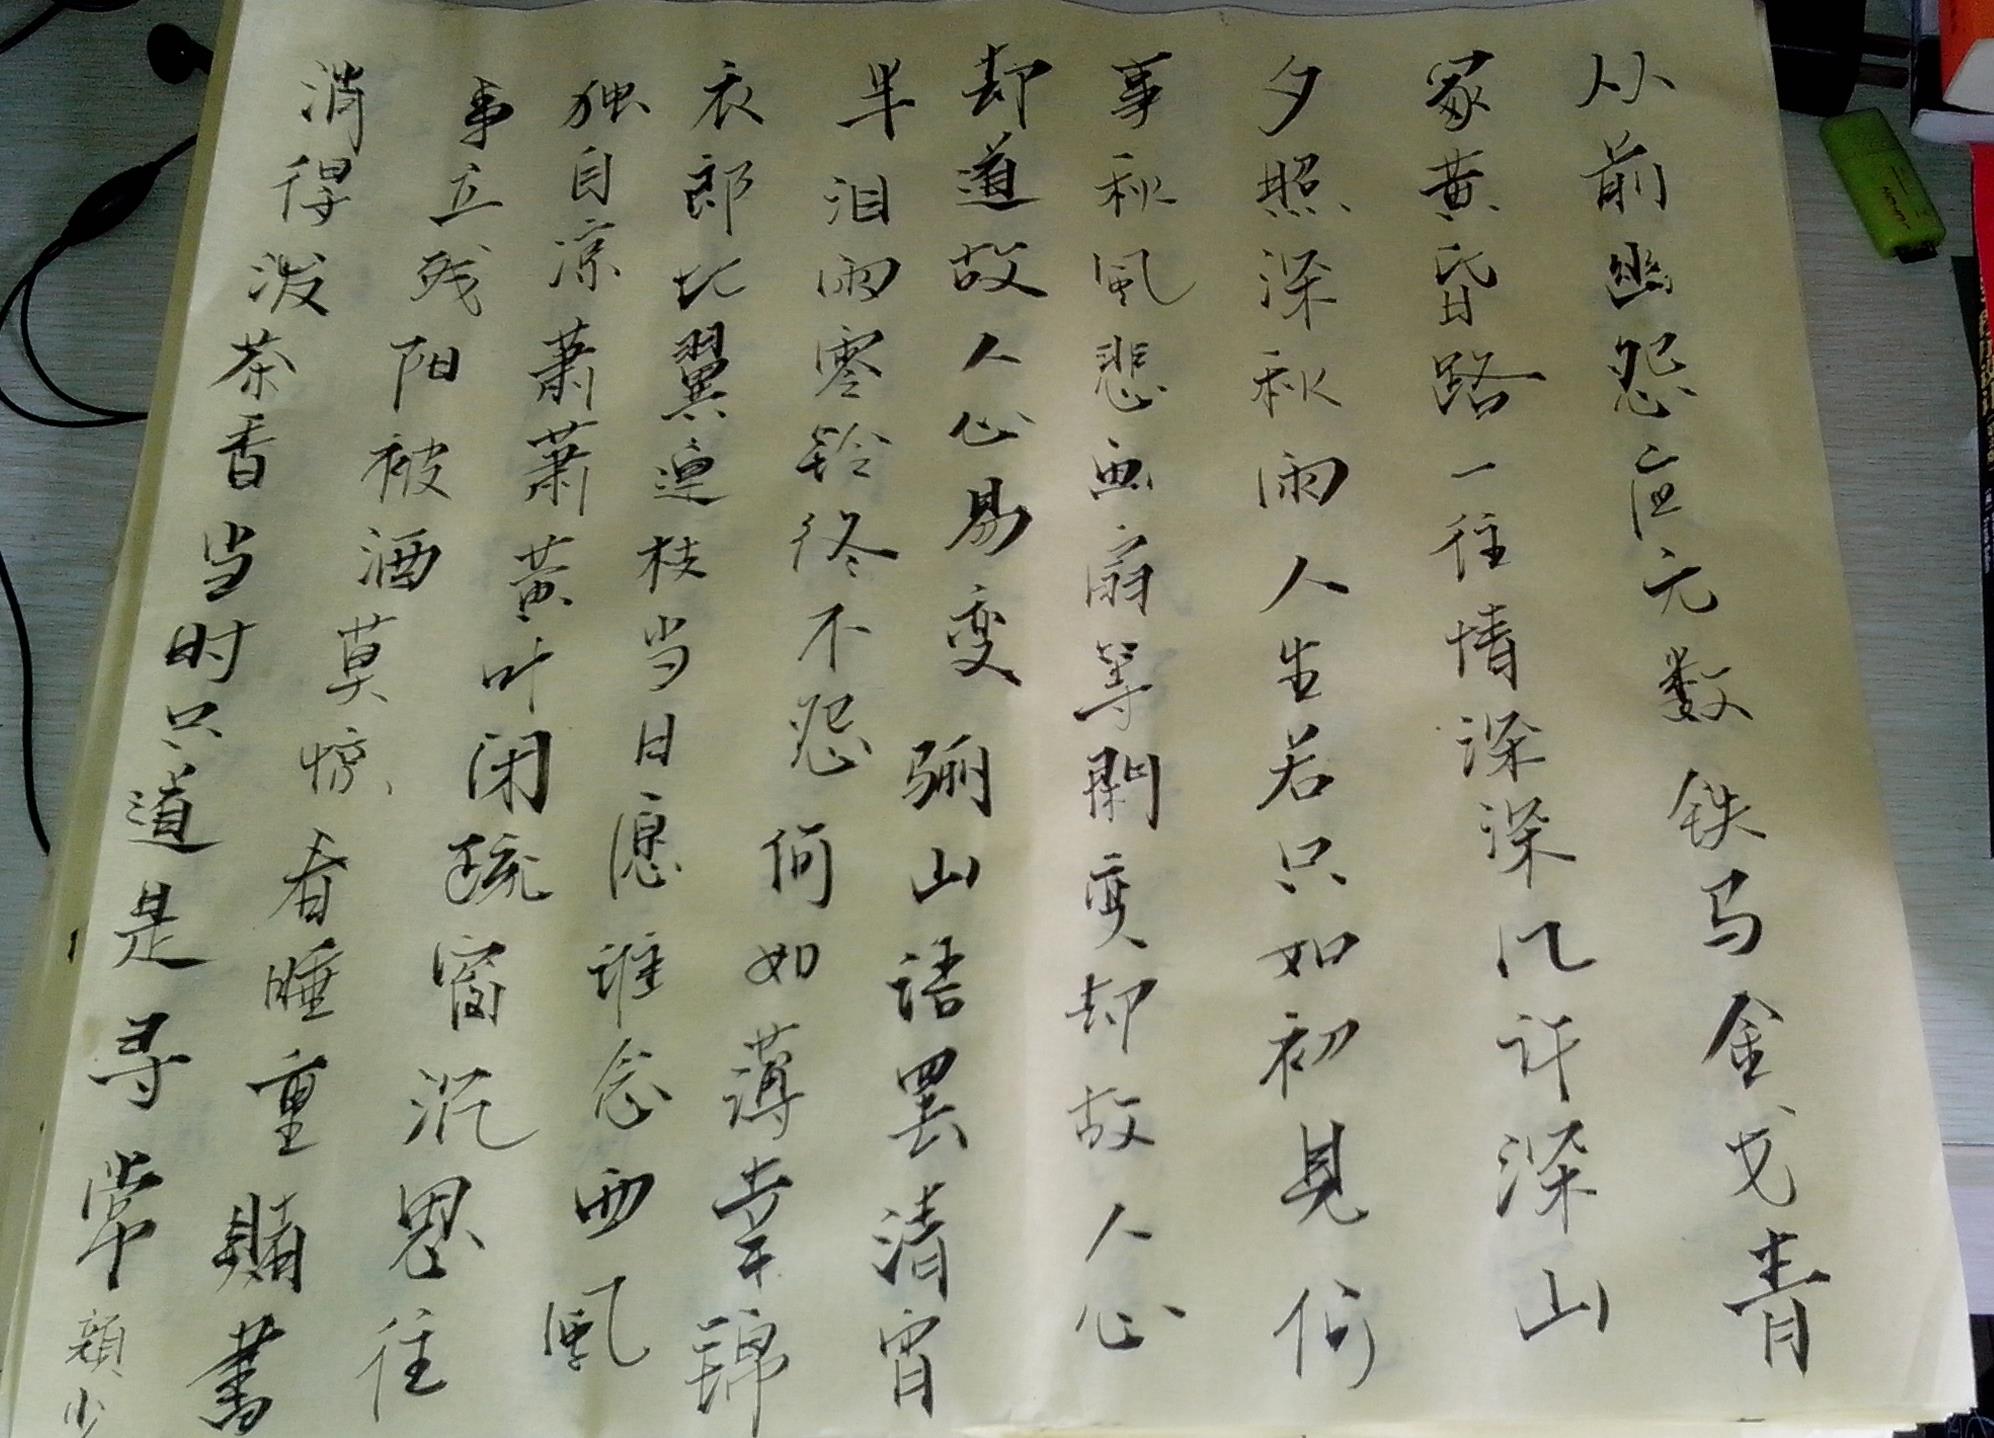 从前幽怨应无数铁马金戈青
冢黄昏路一往情深深几许深山
夕照深秋雨人生若只如初见何
事秋风悲画扇等闲变却故人心
却道故人心易变骊山语罢清宵
半泪雨零铃终不怨何如薄幸锦
衣郎比翼连枝当日愿谁念西风
独自凉萧萧黄叶闭疏窗沉思往
事立残阳被酒莫惊春睡重赌书
消得泼茶香当时只道是寻常